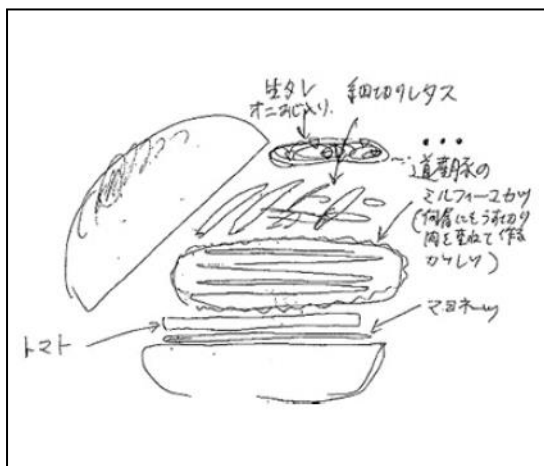 生タレ
オニオン入り.
細切りレタス
・・・
道産豚の
ミルフィーユカツ
(何層にもうす切り
肉を重ねて作る
マヨネーツ
トマト